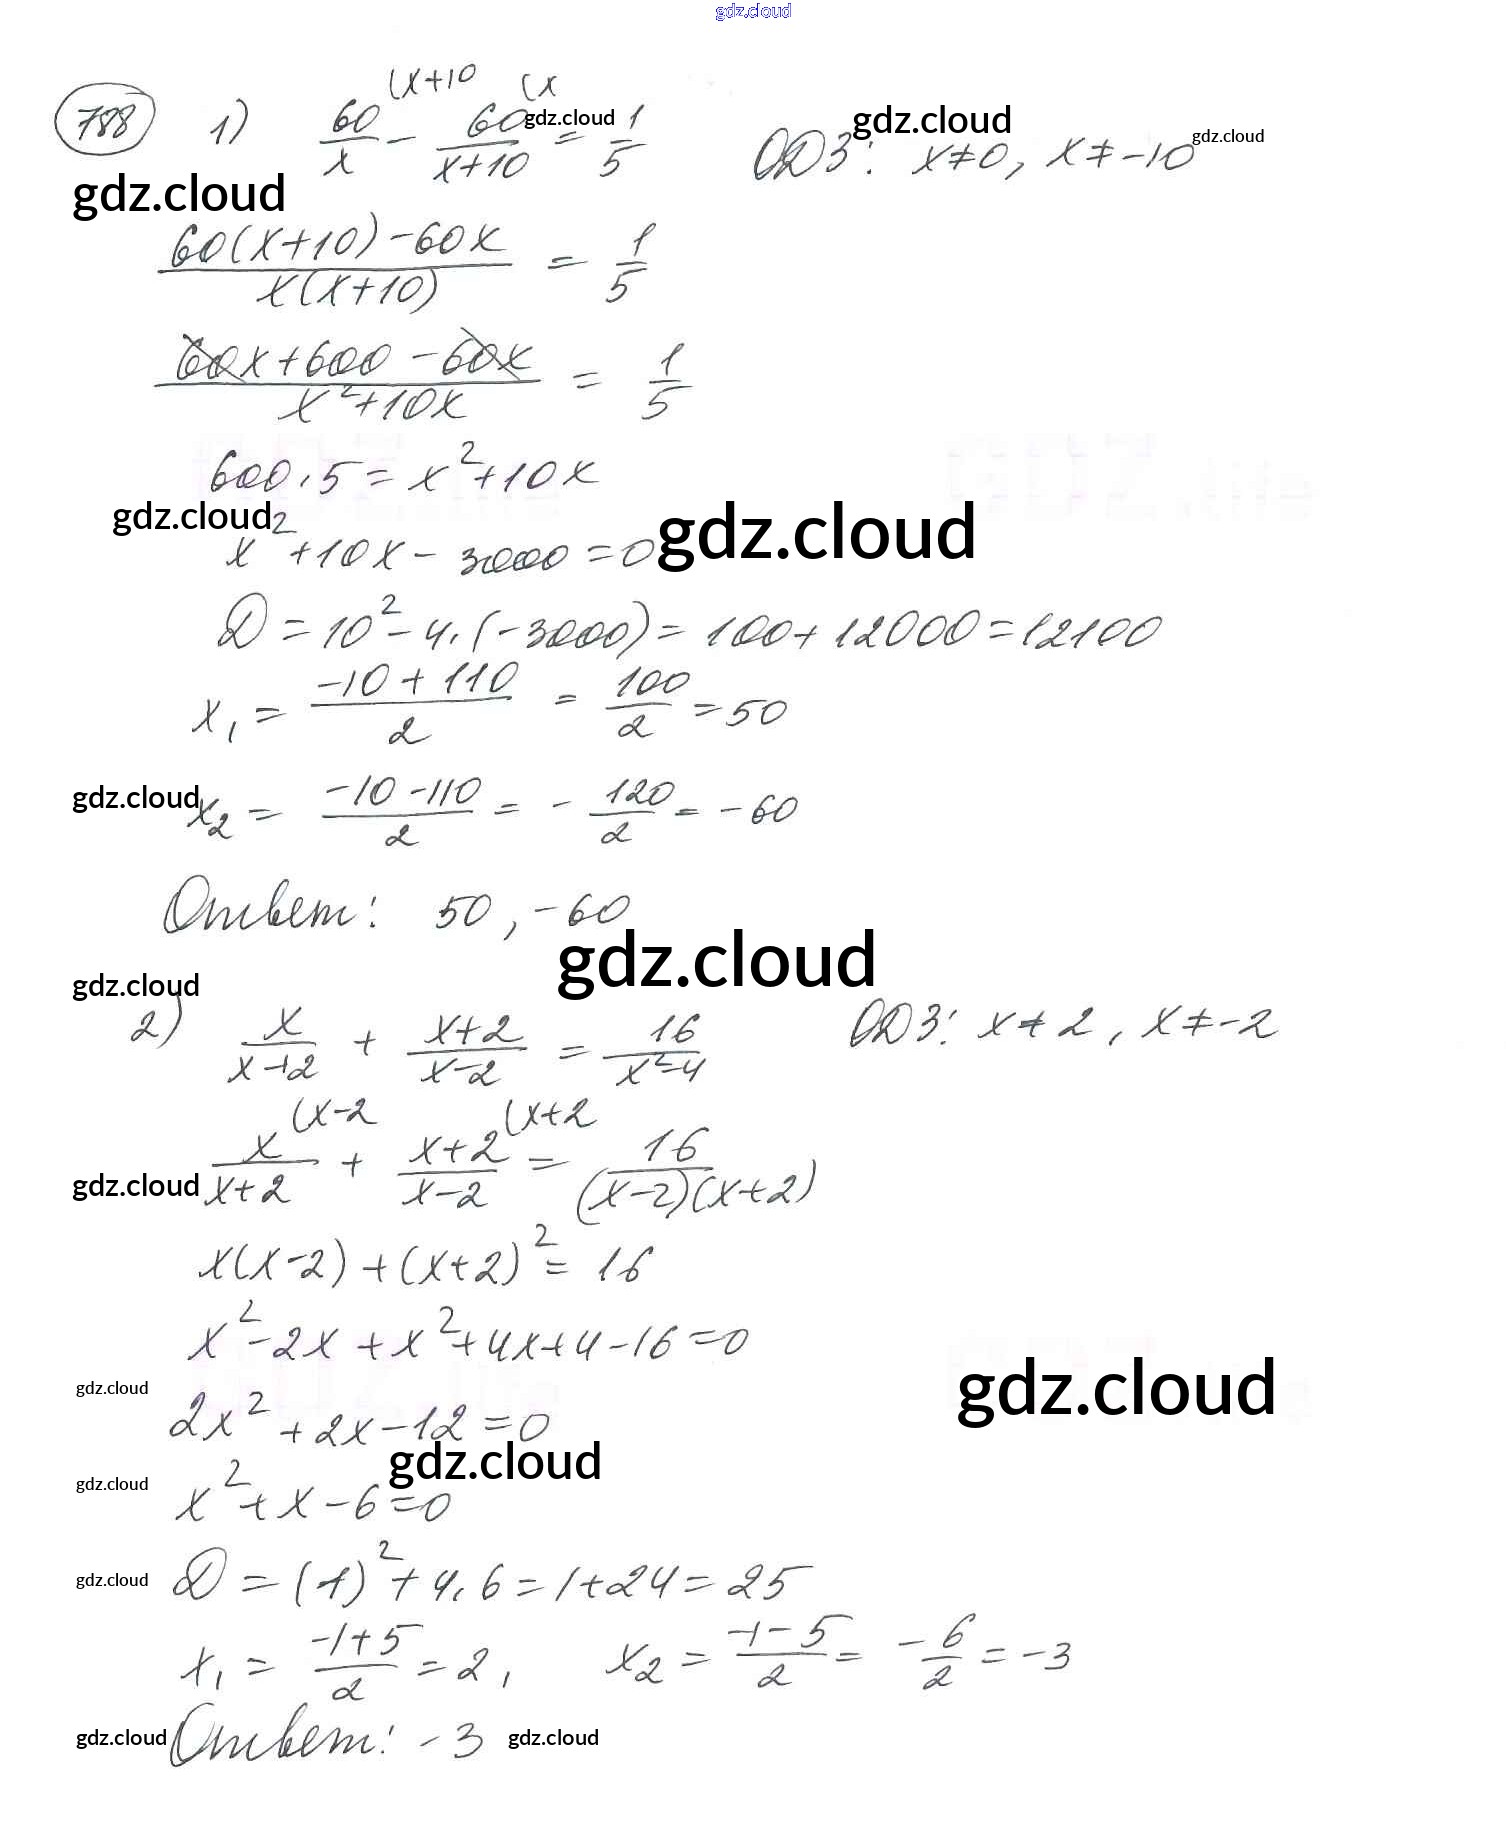 gdz.cloud
788 1) 60/x (x+10 - 60/(x+10) (x = 1/5 ОДЗ: x≠0, x≠-10
gdz.cloud gdz.cloud gdz.cloud
gdz.cloud
(60(x+10)-60x)/(x(x+10)) = 1/5
(60x+600-60x)/(x²+10x) = 1/5
600·5=x²+10x
gdz.cloud gdz.cloud
x²+10x-3000=0
D=10²-4·(-3000)=100+12000=12100
x₁=(-10+110)/2=100/2=50
gdz.cloud
x₂=(-10-110)/2=-120/2=-60
Ответ: 50, -60
gdz.cloud
gdz.cloud
2) x/(x+2) + (x+2)/(x-2) = 16/(x²-4) ОДЗ: x≠2, x≠-2
x/(x+2) (x-2 + (x+2)/(x-2) (x+2 = 16/((x-2)(x+2))
gdz.cloud
x(x-2)+(x+2)²=16
x²-2x+x²+4x+4-16=0
gdz.cloud gdz.cloud
2x²+2x-12=0
gdz.cloud
gdz.cloud
x²+x-6=0
gdz.cloud
D=(1)²+4·6=1+24=25
x₁=(-1+5)/2=2, x₂=(-1-5)/2=-6/2=-3
gdz.cloud Ответ: -3 gdz.cloud